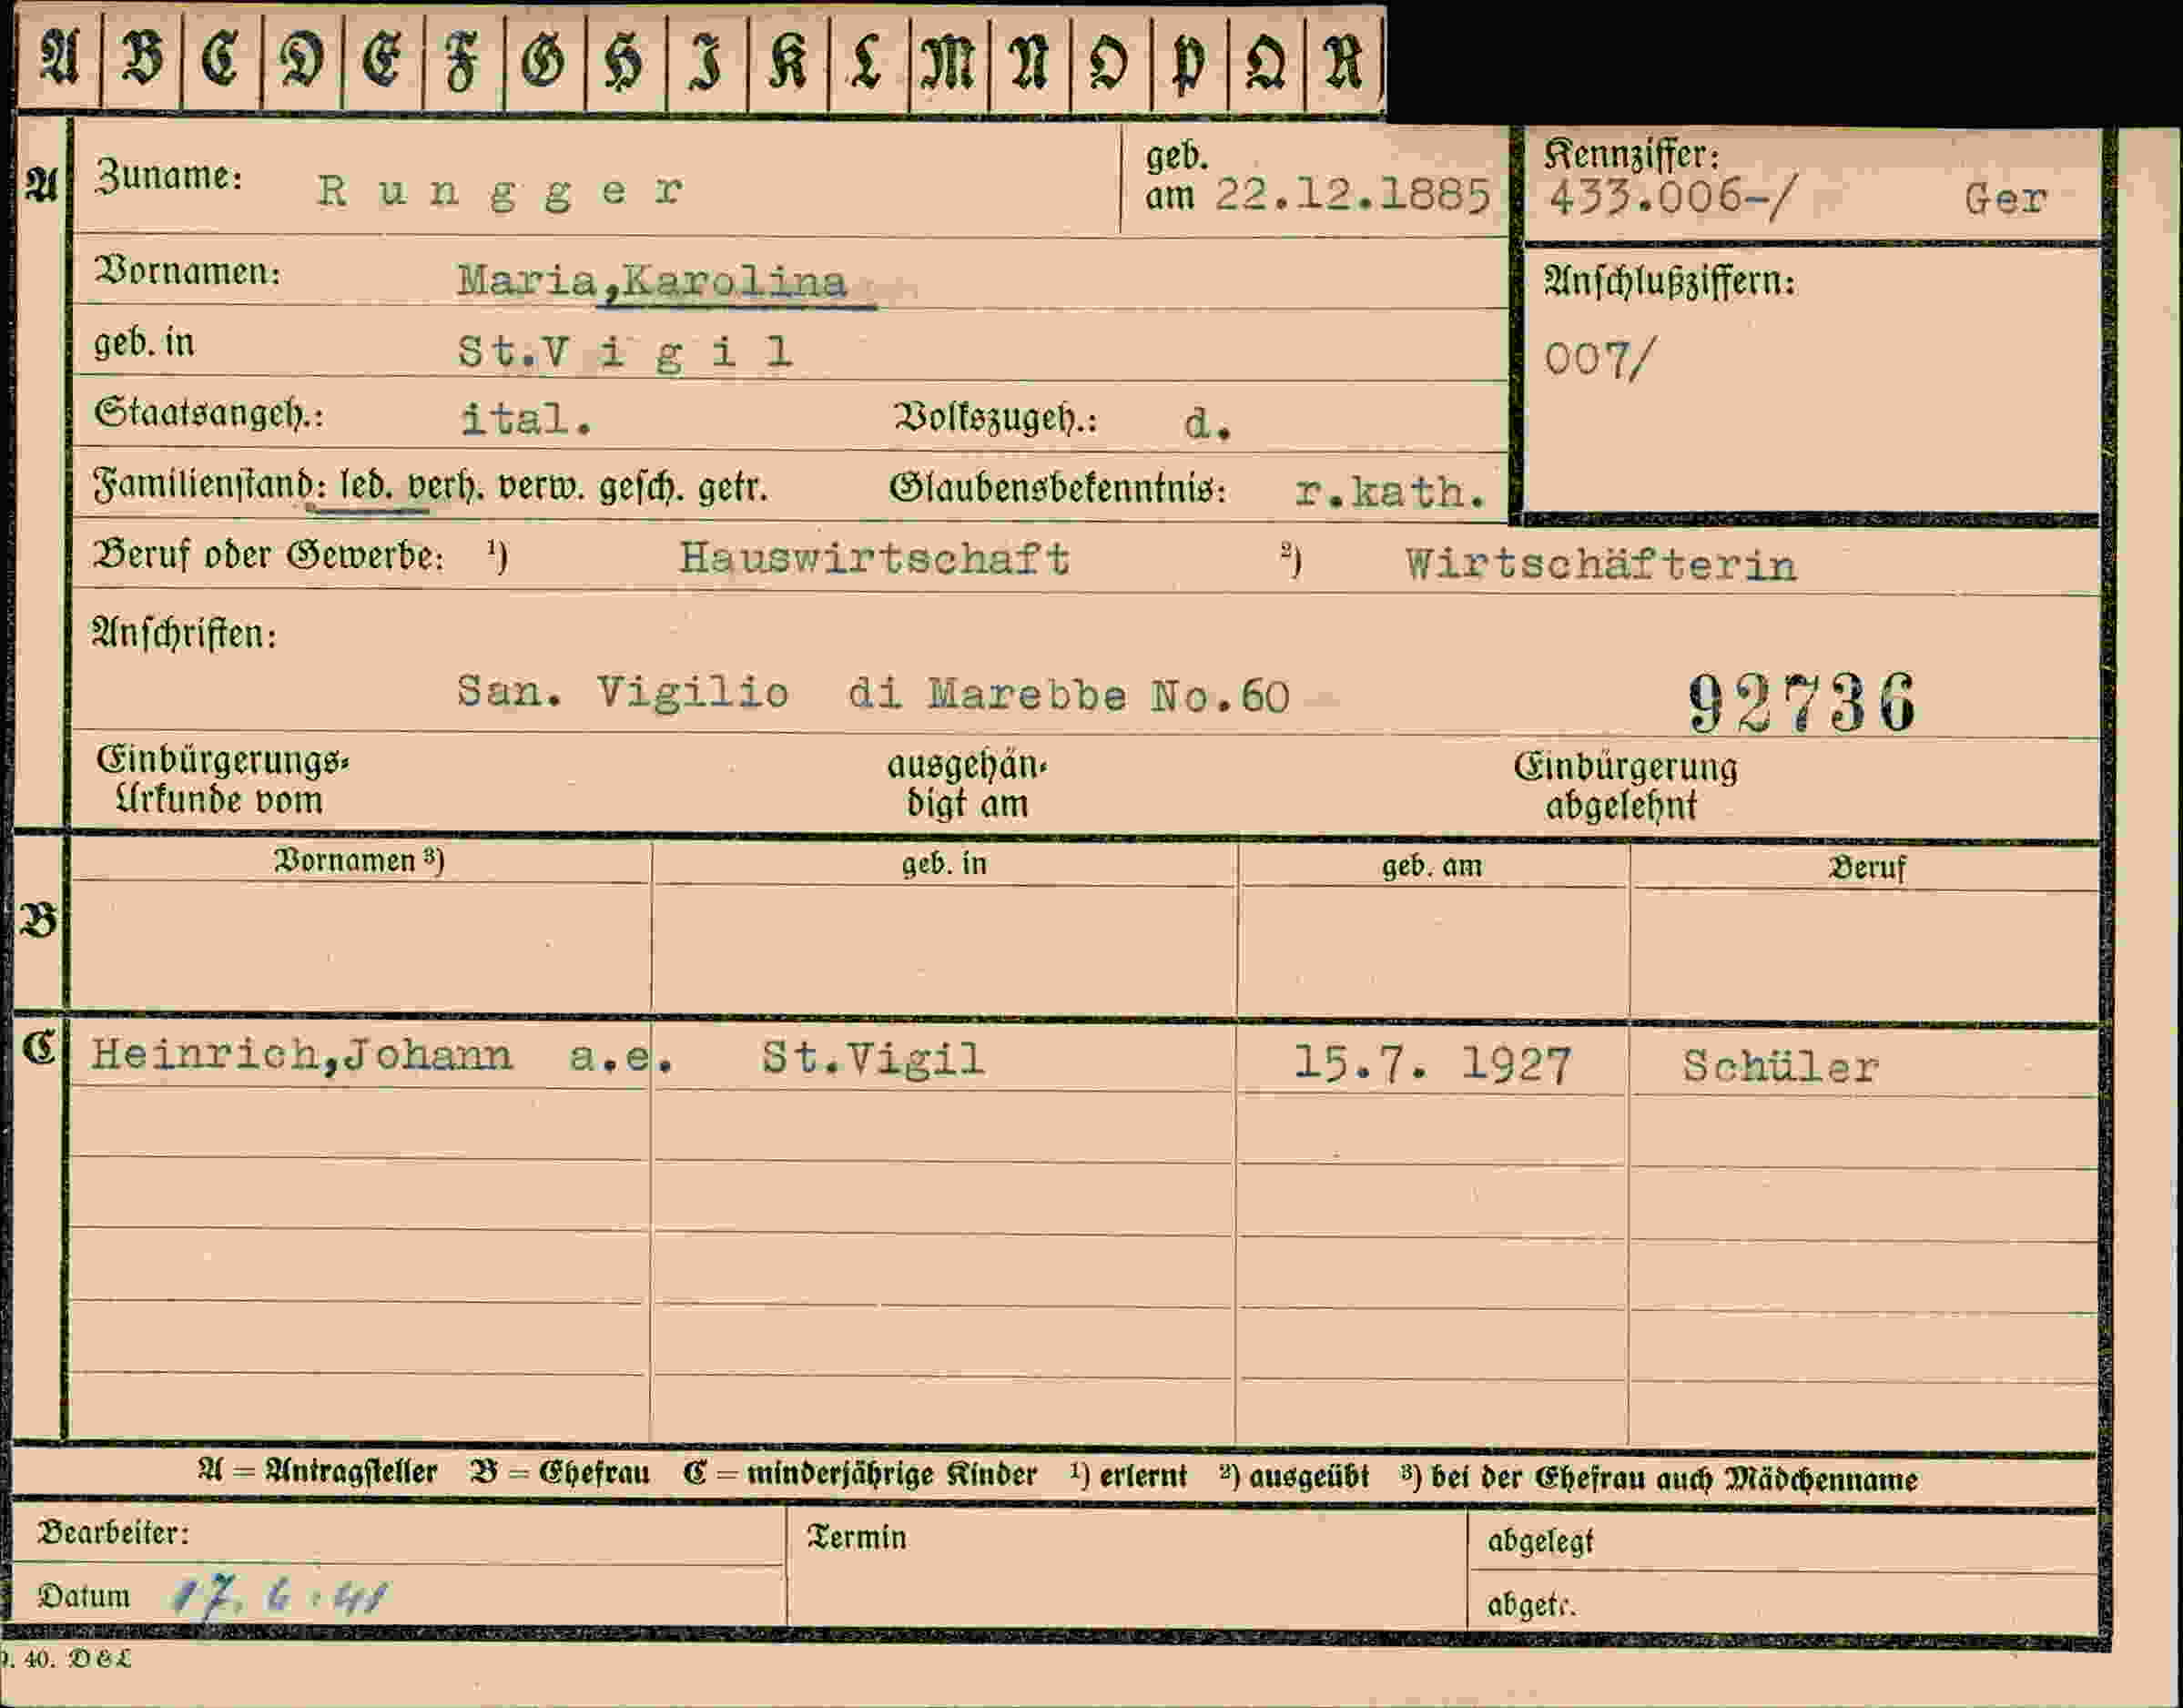 A B C D E F G H I K L M N O P Q R
A Zuname: Rungger geb. am 22.12.1885 Kennziffer: 433.006-/ Ger
Vornamen: Maria,Karolina Anschlußziffern:
geb. in St.Vigil 007/
Staatsangeh.: ital. Volkszugeh.: d.
Familienstand: led. verh. verw. gesch. getr. Glaubensbekenntnis: r.kath.
Beruf oder Gewerbe: ¹) Hauswirtschaft ²) Wirtschäfterin
Anschriften:
San. Vigilio di Marebbe No.60 92736
Einbürgerungs- ausgehän- Einbürgerung
Urkunde vom digt am abgelehnt
Vornamen ³) geb. in geb. am Beruf
B
C Heinrich,Johann a.e. St.Vigil 15.7. 1927 Schüler
A = Antragsteller B = Ehefrau C = minderjährige Kinder ¹) erlernt ²) ausgeübt ³) bei der Ehefrau auch Mädchenname
Bearbeiter: Termin abgelegt
Datum 17. 6. 41 abgetr.
. 40. D&L